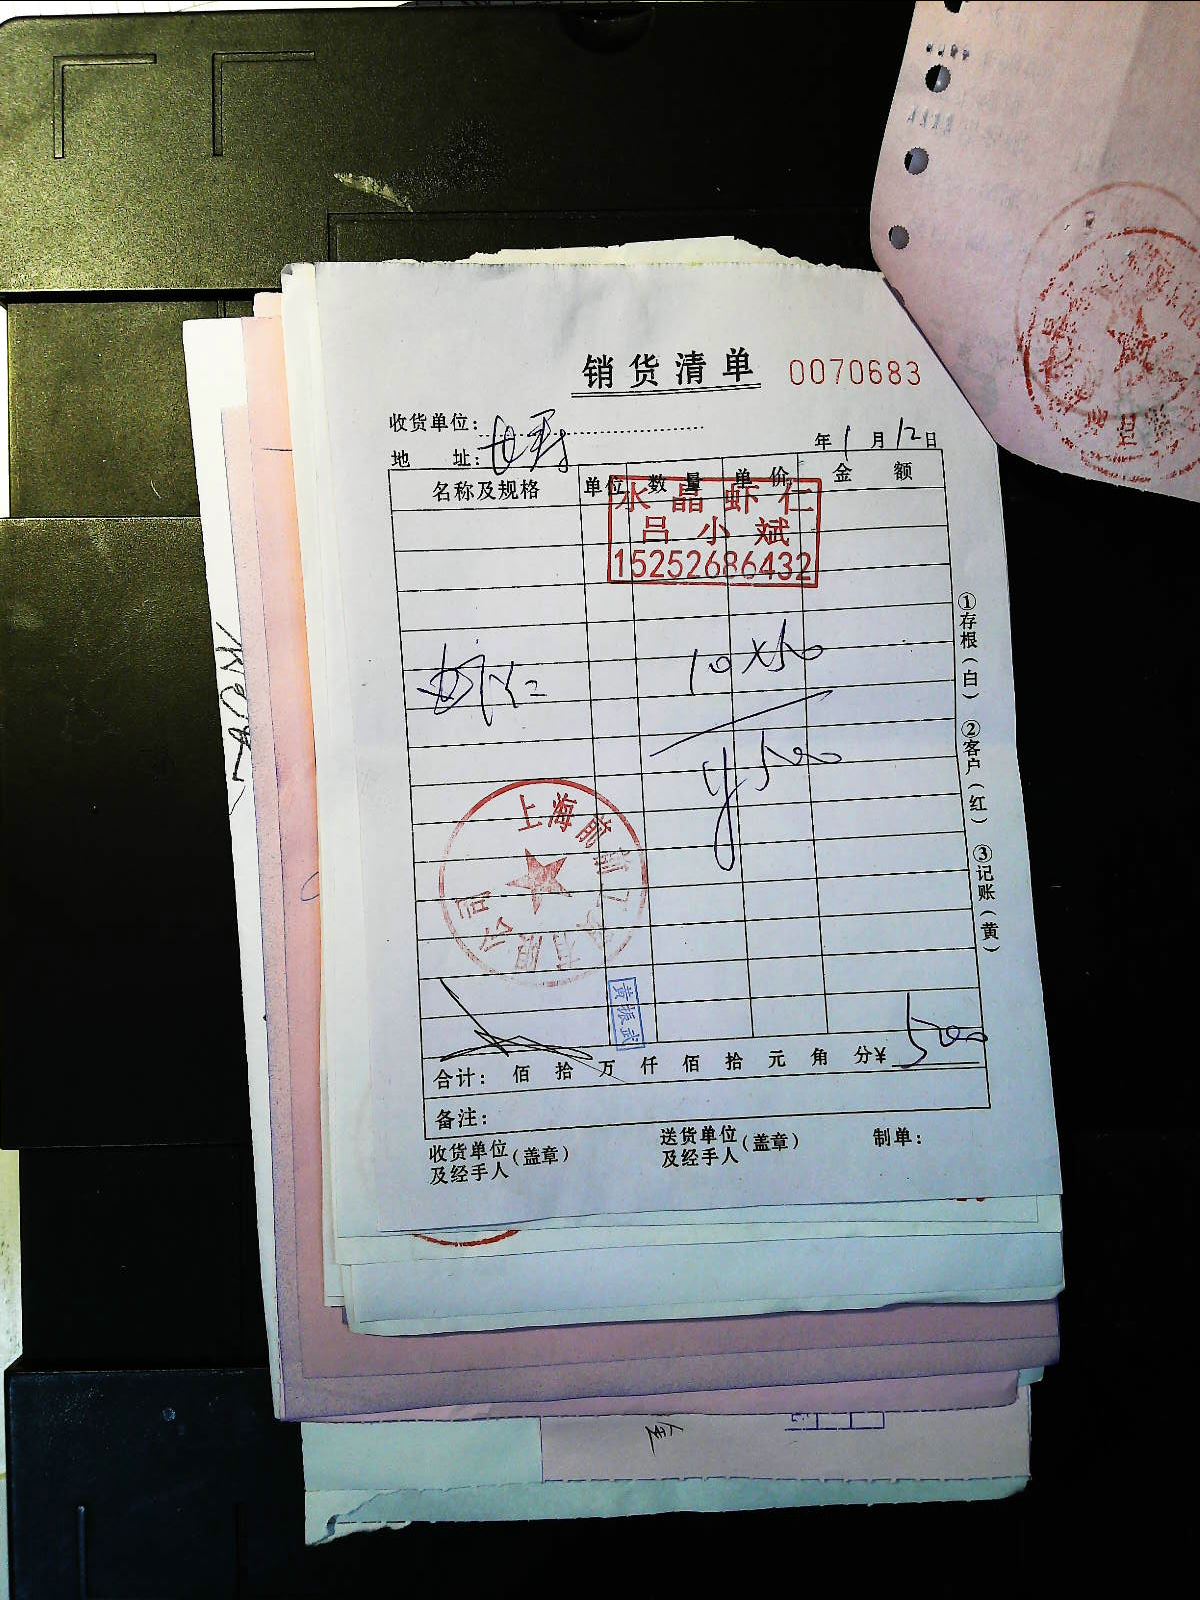 销货清单 0070683
收货单位：
年1月12日
地 址：
名称及规格 单位 数量 单价 金额
水晶虾仁
吕小斌
15252686432
虾仁 10×50
¥500
上海前 有限公司
黄振武
合计： 佰 拾 万 仟 佰 拾 元 角 分¥ 500
备注：
收货单位及经手人（盖章） 送货单位及经手人（盖章） 制单：
①存根（白） ②客户（红） ③记账（黄）